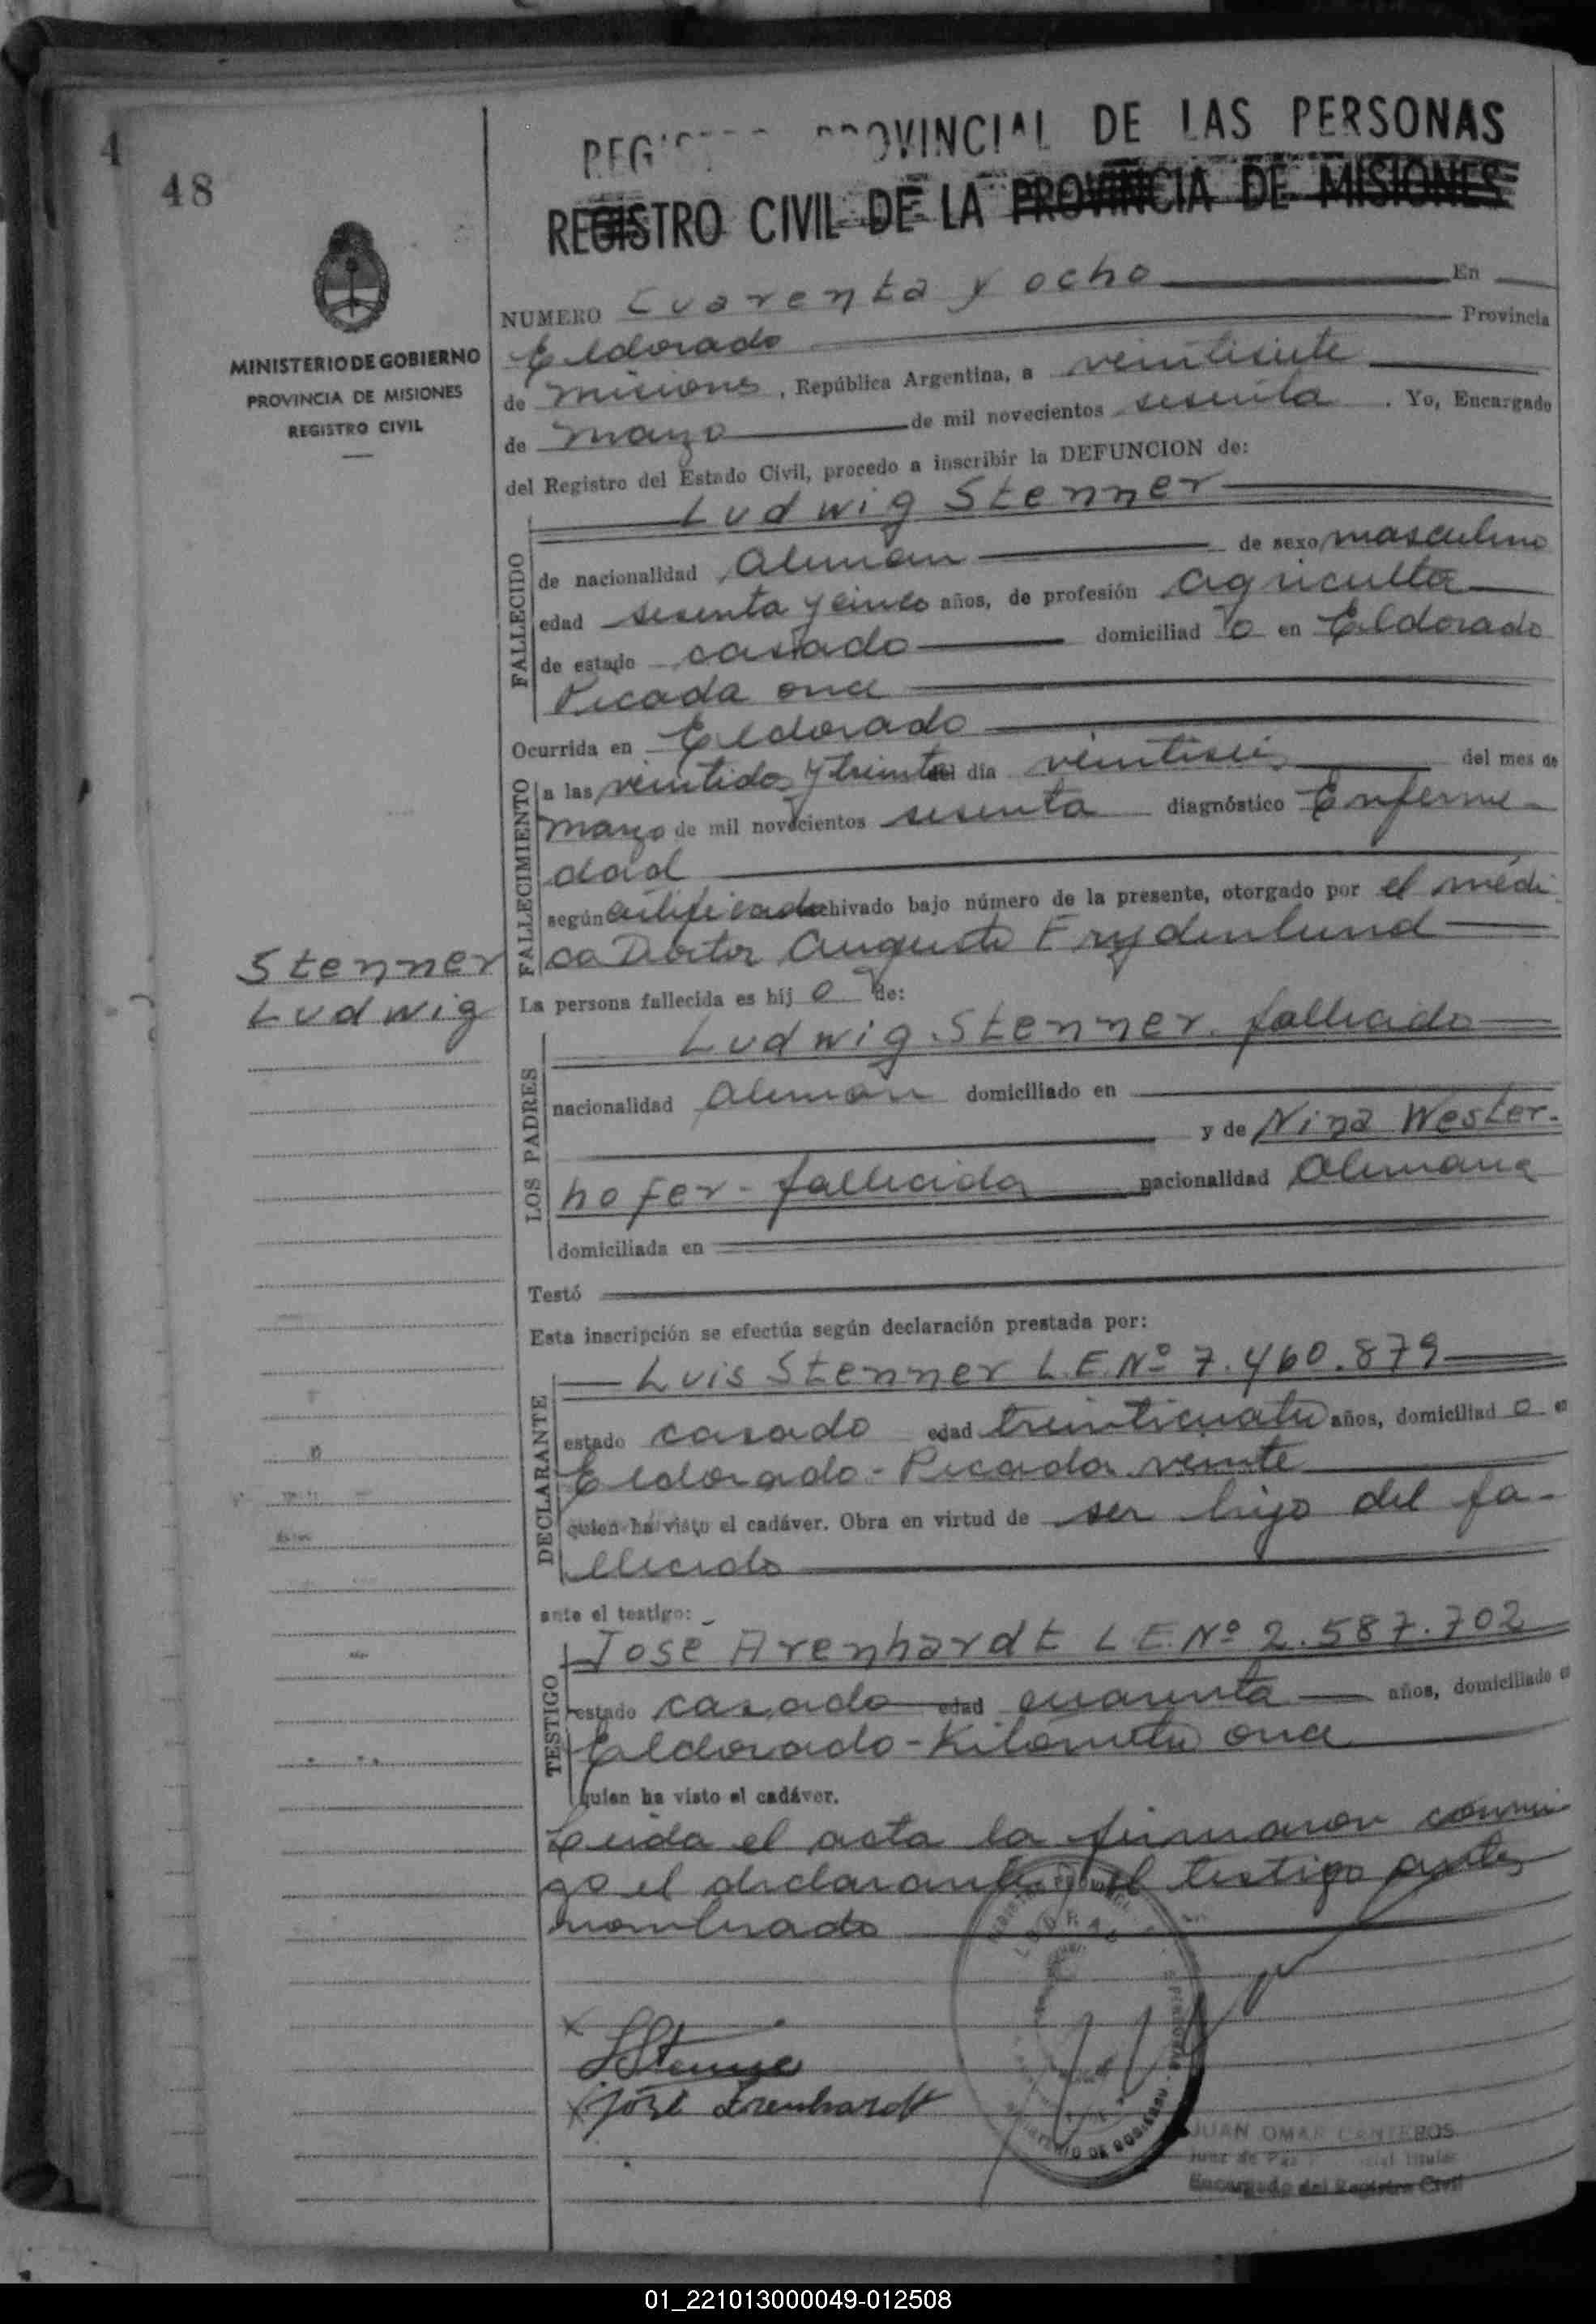 4
48
REGISTRO PROVINCIAL DE LAS PERSONAS
REGISTRO CIVIL DE LA PROVINCIA DE MISIONES
MINISTERIO DE GOBIERNO
PROVINCIA DE MISIONES
REGISTRO CIVIL
NUMERO Cuarenta y ocho En
Eldorado Provincia
de Misiones, República Argentina, a veintisiete
de marzo de mil novecientos sesenta. Yo, Encargado
del Registro del Estado Civil, procedo a inscribir la DEFUNCION de:
Ludwig Stenner
FALLECIDO
de nacionalidad Alemán de sexo masculino
edad sesenta y cinco años, de profesión agricultor
de estado casado domiciliad o en Eldorado
Picada once
Ocurrida en Eldorado
FALLECIMIENTO
a las veintidos y treinta del día veintiseis del mes de
marzo de mil novecientos sesenta diagnóstico Enferme-
dad
según certificado archivado bajo número de la presente, otorgado por el médi
co Doctor Augusto Frydenlund
Stenner
Ludwig
La persona fallecida es hij o de:
LOS PADRES
Ludwig Stenner. fallecido
nacionalidad Alemán domiciliado en
y de Nina Wester-
hofer - fallecida nacionalidad Alemana
domiciliada en
Testó
Esta inscripción se efectúa según declaración prestada por:
DECLARANTE
Luis Stenner L.E.Nº 7.460.879
estado casado edad treinticuatro años, domiciliad o en
Eldorado - Picada veinte
quien ha visto el cadáver. Obra en virtud de ser hijo del fa-
llecido
ante el testigo:
TESTIGO
José Arenhardt L.E.Nº 2.587.702
estado casado edad cuarenta años, domiciliado en
Eldorado - Kilómetro once
quien ha visto el cadáver.
Leida el acta la firmaron conmi
go el declarante y el testigo antes
nombrado
X
LStenner
X José Arenhardt
MINISTERIO DE GOBIERNO
JUAN OMAR CANTEROS
Juez de Paz titular
Encargado del Registro Civil
01_221013000049-012508